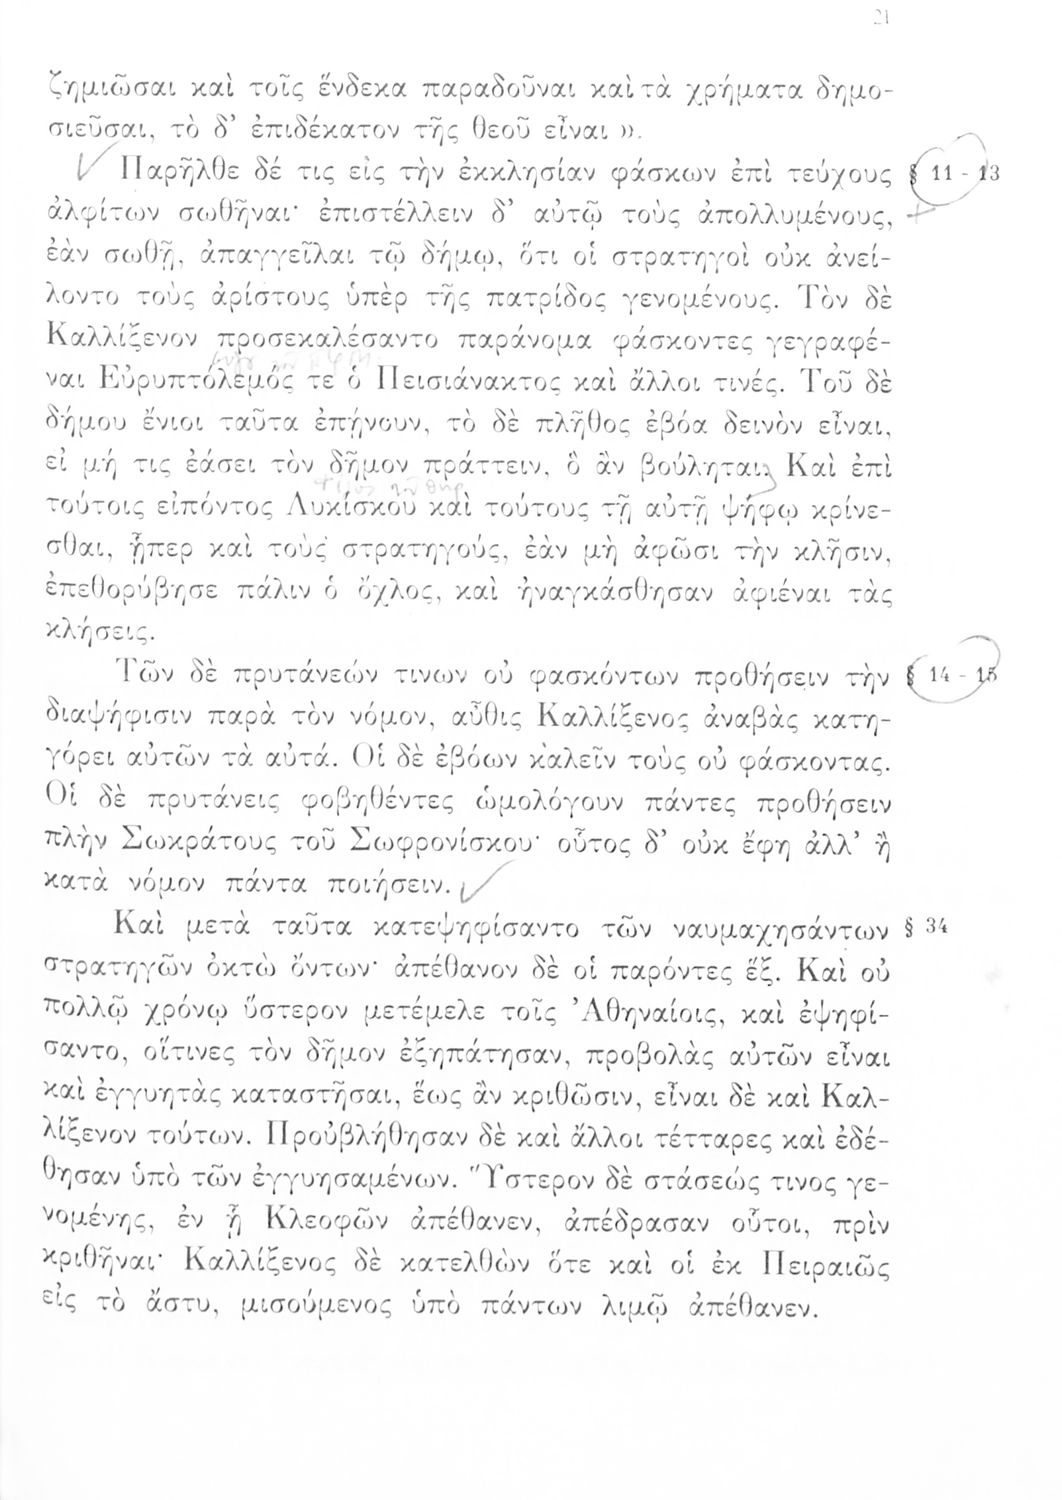 21
ζημιῶσαι καὶ τοῖς ἕνδεκα παραδοῦναι καὶ τὰ χρήματα δημο-
σιεῦσαι, τὸ δ’ ἐπιδέκατον τῆς θεοῦ εἶναι ».
Παρῆλθε δέ τις εἰς τὴν ἐκκλησίαν φάσκων ἐπὶ τεύχους § 11 - 13
ἀλφίτων σωθῆναι· ἐπιστέλλειν δ’ αὐτῷ τοὺς ἀπολλυμένους,
ἐὰν σωθῇ, ἀπαγγεῖλαι τῷ δήμῳ, ὅτι οἱ στρατηγοὶ οὐκ ἀνεί-
λοντο τοὺς ἀρίστους ὑπὲρ τῆς πατρίδος γενομένους. Τὸν δὲ
Καλλίξενον προσεκαλέσαντο παράνομα φάσκοντες γεγραφέ-
ναι Εὐρυπτόλεμός τε ὁ Πεισιάνακτος καὶ ἄλλοι τινές. Τοῦ δὲ
δήμου ἔνιοι ταῦτα ἐπῄνουν, τὸ δὲ πλῆθος ἐβόα δεινὸν εἶναι,
εἰ μή τις ἐάσει τὸν δῆμον πράττειν, ὃ ἂν βούληται. Καὶ ἐπὶ
τούτοις εἰπόντος Λυκίσκου καὶ τούτους τῇ αὐτῇ ψήφῳ κρίνε-
σθαι, ᾗπερ καὶ τοὺς στρατηγούς, ἐὰν μὴ ἀφῶσι τὴν κλῆσιν,
ἐπεθορύβησε πάλιν ὁ ὄχλος, καὶ ἠναγκάσθησαν ἀφιέναι τὰς
κλήσεις.
Τῶν δὲ πρυτάνεών τινων οὐ φασκόντων προθήσειν τὴν § 14 - 15
διαψήφισιν παρὰ τὸν νόμον, αὖθις Καλλίξενος ἀναβὰς κατη-
γόρει αὐτῶν τὰ αὐτά. Οἱ δὲ ἐβόων καλεῖν τοὺς οὐ φάσκοντας.
Οἱ δὲ πρυτάνεις φοβηθέντες ὡμολόγουν πάντες προθήσειν
πλὴν Σωκράτους τοῦ Σωφρονίσκου· οὗτος δ’ οὐκ ἔφη ἀλλ’ ἢ
κατὰ νόμον πάντα ποιήσειν.
Καὶ μετὰ ταῦτα κατεψηφίσαντο τῶν ναυμαχησάντων § 34
στρατηγῶν ὀκτὼ ὄντων· ἀπέθανον δὲ οἱ παρόντες ἕξ. Καὶ οὐ
πολλῷ χρόνῳ ὕστερον μετέμελε τοῖς Ἀθηναίοις, καὶ ἐψηφί-
σαντο, οἵτινες τὸν δῆμον ἐξηπάτησαν, προβολὰς αὐτῶν εἶναι
καὶ ἐγγυητὰς καταστῆσαι, ἕως ἂν κριθῶσιν, εἶναι δὲ καὶ Καλ-
λίξενον τούτων. Προὐβλήθησαν δὲ καὶ ἄλλοι τέτταρες καὶ ἐδέ-
θησαν ὑπὸ τῶν ἐγγυησαμένων. Ὕστερον δὲ στάσεώς τινος γε-
νομένης, ἐν ᾗ Κλεοφῶν ἀπέθανεν, ἀπέδρασαν οὗτοι, πρὶν
κριθῆναι· Καλλίξενος δὲ κατελθὼν ὅτε καὶ οἱ ἐκ Πειραιῶς
εἰς τὸ ἄστυ, μισούμενος ὑπὸ πάντων λιμῷ ἀπέθανεν.